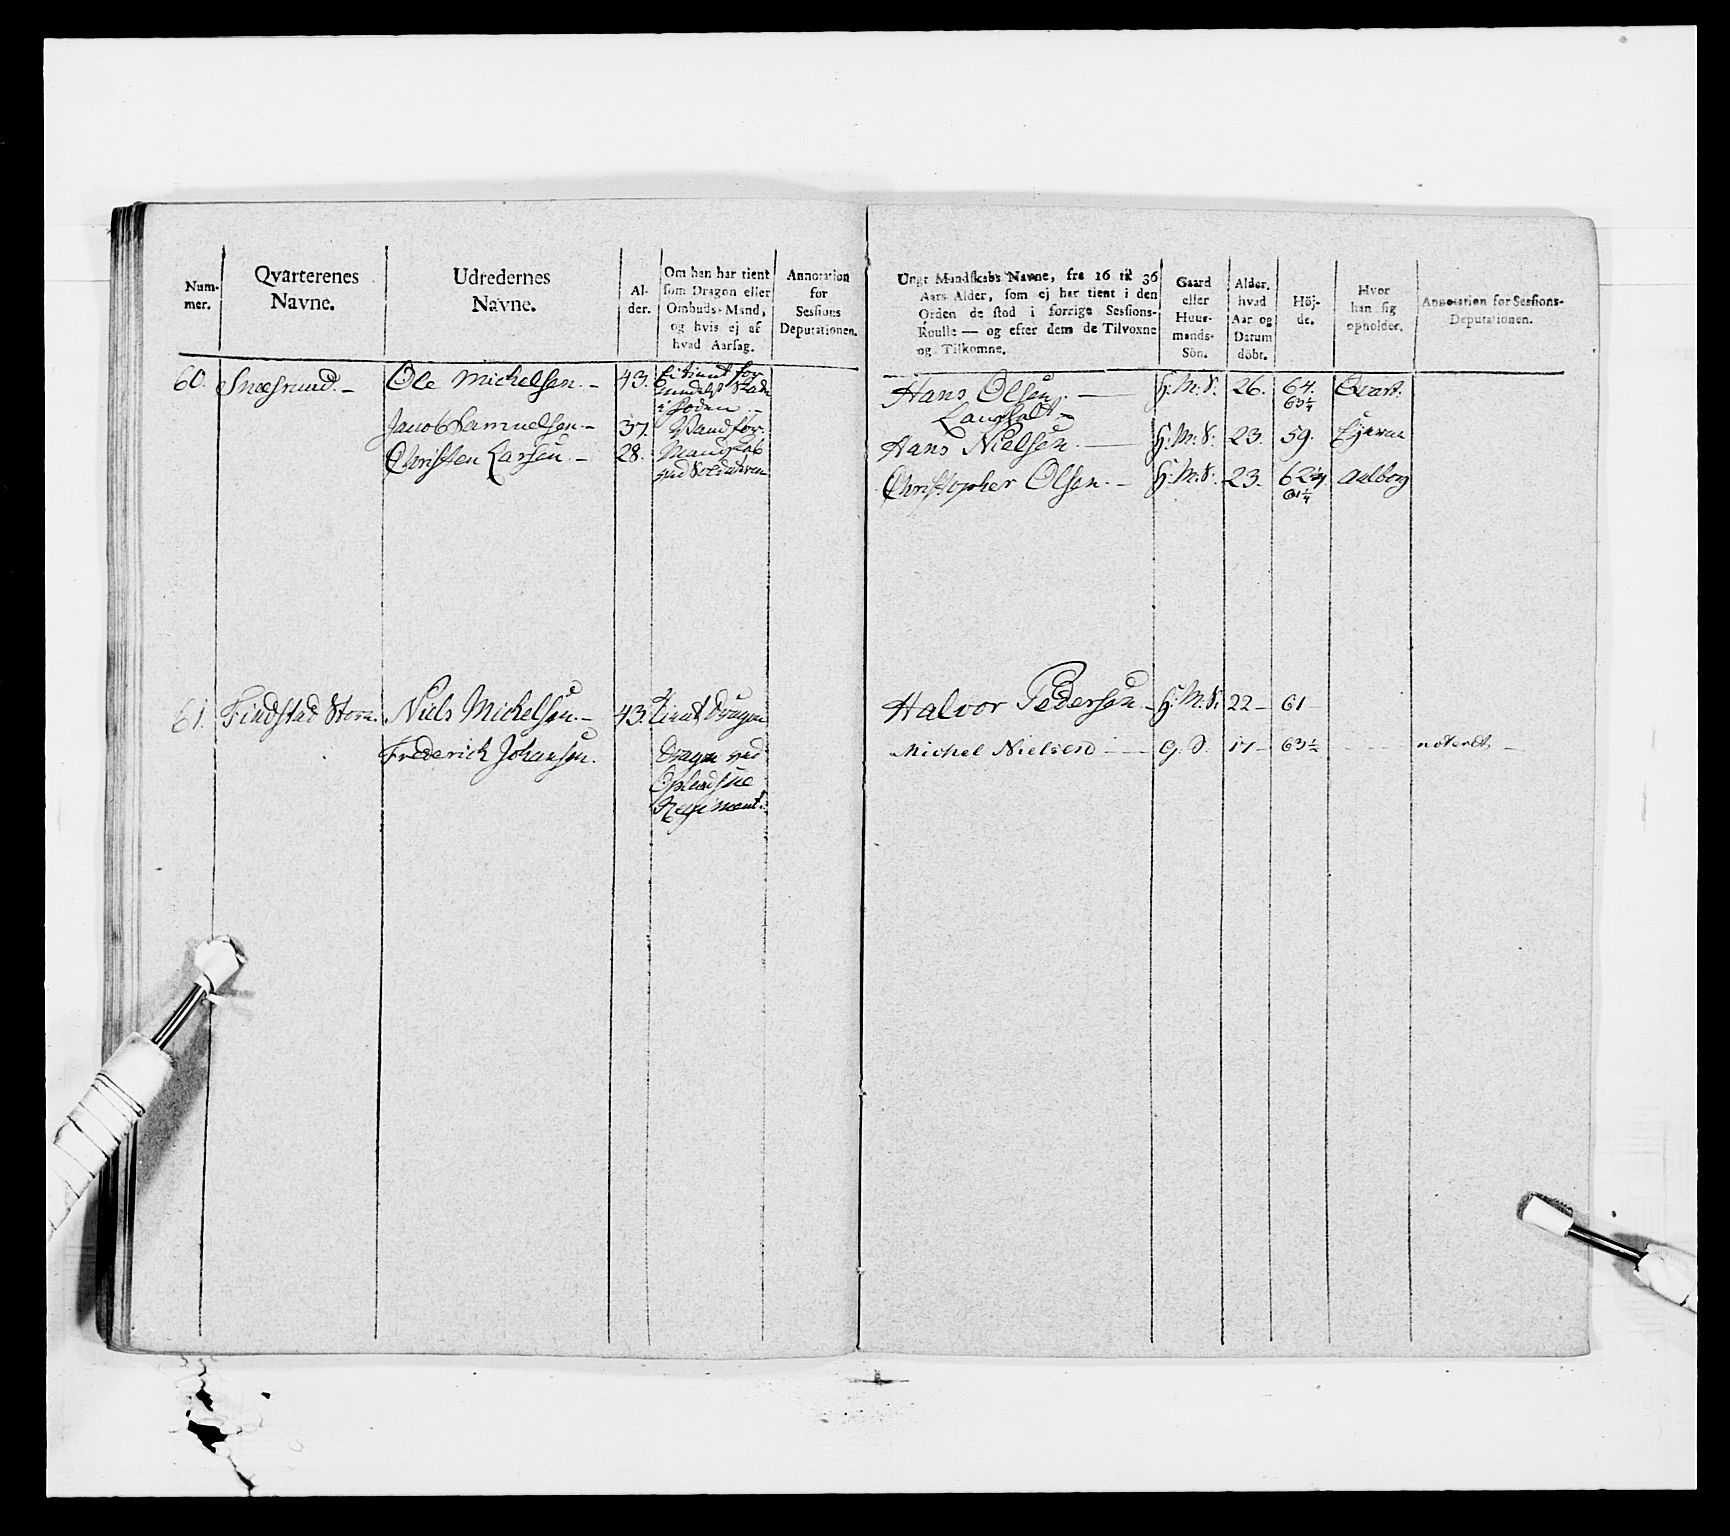 Num-
mer.
Qvarterenes
Navne.
Udredernes
Navne.
Al-
der.
Om han har tient
som Dragon eller
Ombuds-Mand,
og hvis ej af
hvad Aarsag.
Annotation
for
Sessions
Deputationen.
60. Snesrund.- Ole Michelsen.- 43.
i Foden.-
Jacob Samuelsen.- 37.
Christen Larsen.- 28. Mandskab
61. Findstad Store. Niels Michelsen.- 43. tient Dragon
Frederich Johansen. Dragon ved
Oplandske
Regiment.
Unge Mandskabs Navne, fra 16 til 36
Aars Alder, som ej har tient i den
Orden de stod i forrige Sessions-
Roulle — og efter dem de Tilvoxne
og Tilkomne.
Gaard
eller
Huus-
mands-
Sön.
Alder.
hvad
Aar og
Datum
döbt.
Höj-
de.
Hvor
han sig
opholder.
Annotation for Sessions-
Deputationen.
Hans Olsen. — H.M.S. 26. 64. Qvart.
63¼
Hans Nielsen. — H.M.S. 23. 59.
Christopher Olsen.- H.M.S. 23. 62 Aalborg
61¼
Halvor Pedersen.- H.M.S. 22- 61-
Michel Nielsen - - G.S. 17- 63½ - - noteret -